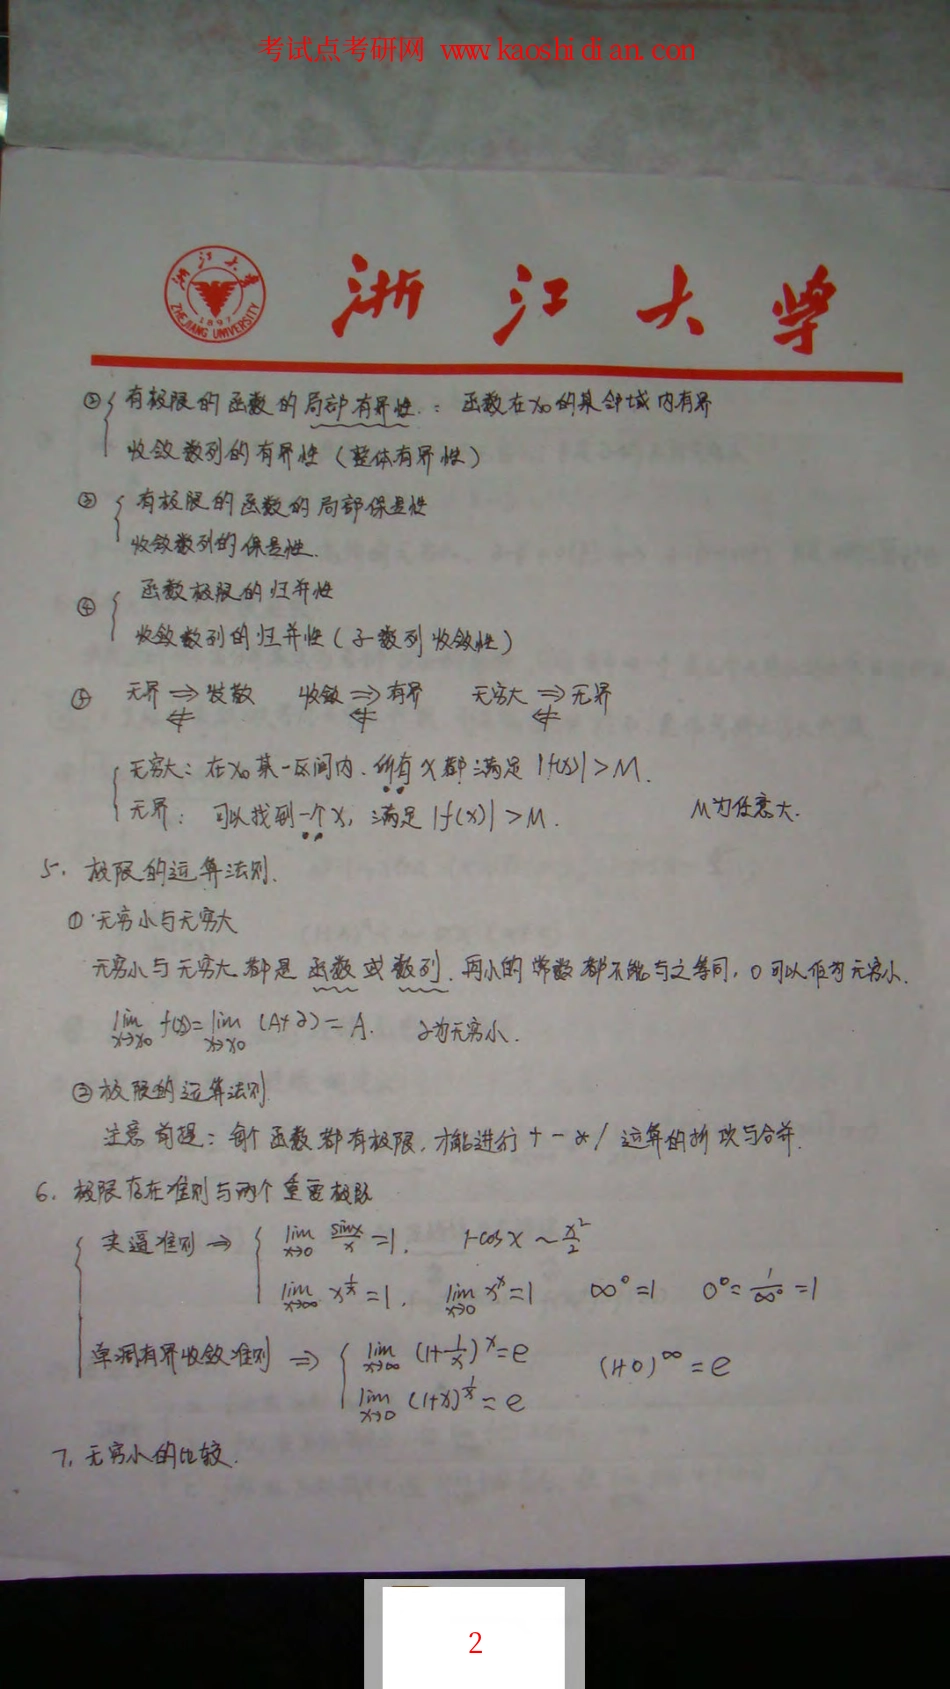 考试点考研网 www.kaoshidian.com
浙江大学
浙江大学
ZHEJIANG UNIVERSITY
1897
② { 有极限的函数的局部有界性:函数在x₀的某邻域内有界
收敛数列的有界性(整体有界性)
③ { 有极限的函数的局部保号性
收敛数列的保号性.
④ { 函数极限的归并性
收敛数列的归并性(子数列收敛性)
⑤ 无界 ⇒ 发散 收敛 ⇒ 有界 无穷大 ⇒ 无界
⇍ ⇍ ⇍
{ 无穷大:在x₀某一区间内、所有x都满足|f(x)|>M.
无界:可以找到一个x,满足|f(x)|>M. M为任意大.
5. 极限的运算法则.
① 无穷小与无穷大
无穷小与无穷大都是函数或数列.再小的常数都不能与之等同,0可以作为无穷小.
lim x→x₀ f(x)=lim x→x₀ (A+α)=A. α为无穷小.
② 极限的运算法则
注意前提:每个函数都有极限,才能进行 + - * / 运算的拆项与合并.
6. 极限存在准则与两个重要极限
{ 夹逼准则 ⇒ { lim x→0 sinx/x =1. 1-cosx ~ x²/2
lim x→∞ x^(1/x) =1. lim x→0 x^x =1 ∞⁰=1 0⁰=1/∞⁰=1
单调有界收敛准则 ⇒ { lim x→∞ (1+1/x)^x =e (1+0)^∞ =e
lim x→0 (1+x)^(1/x) =e
7. 无穷小的比较.
2